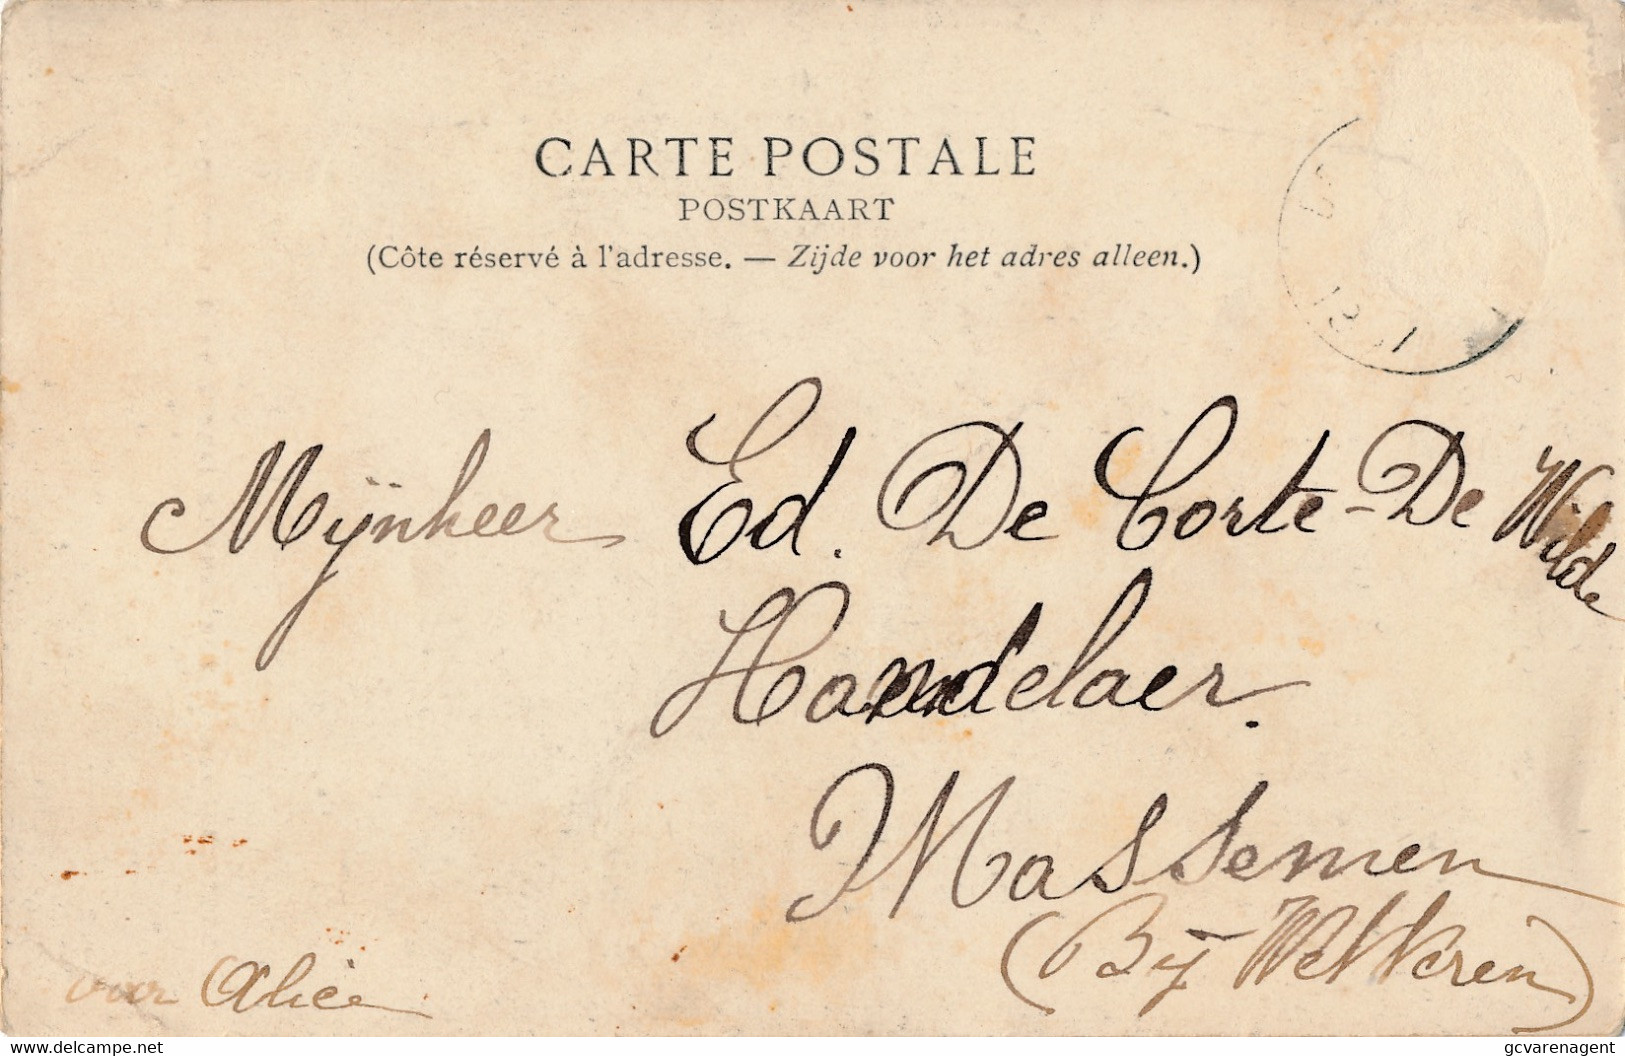 CARTE POSTALE
POSTKAART
(Côte réservé à l'adresse. — Zijde voor het adres alleen.)
Mijnheer Ed. De Corte-De Wilde
Handelaer.
Massemen
(Bij Wetteren)
voor Alice
www.delcampe.net
gcvarenagent